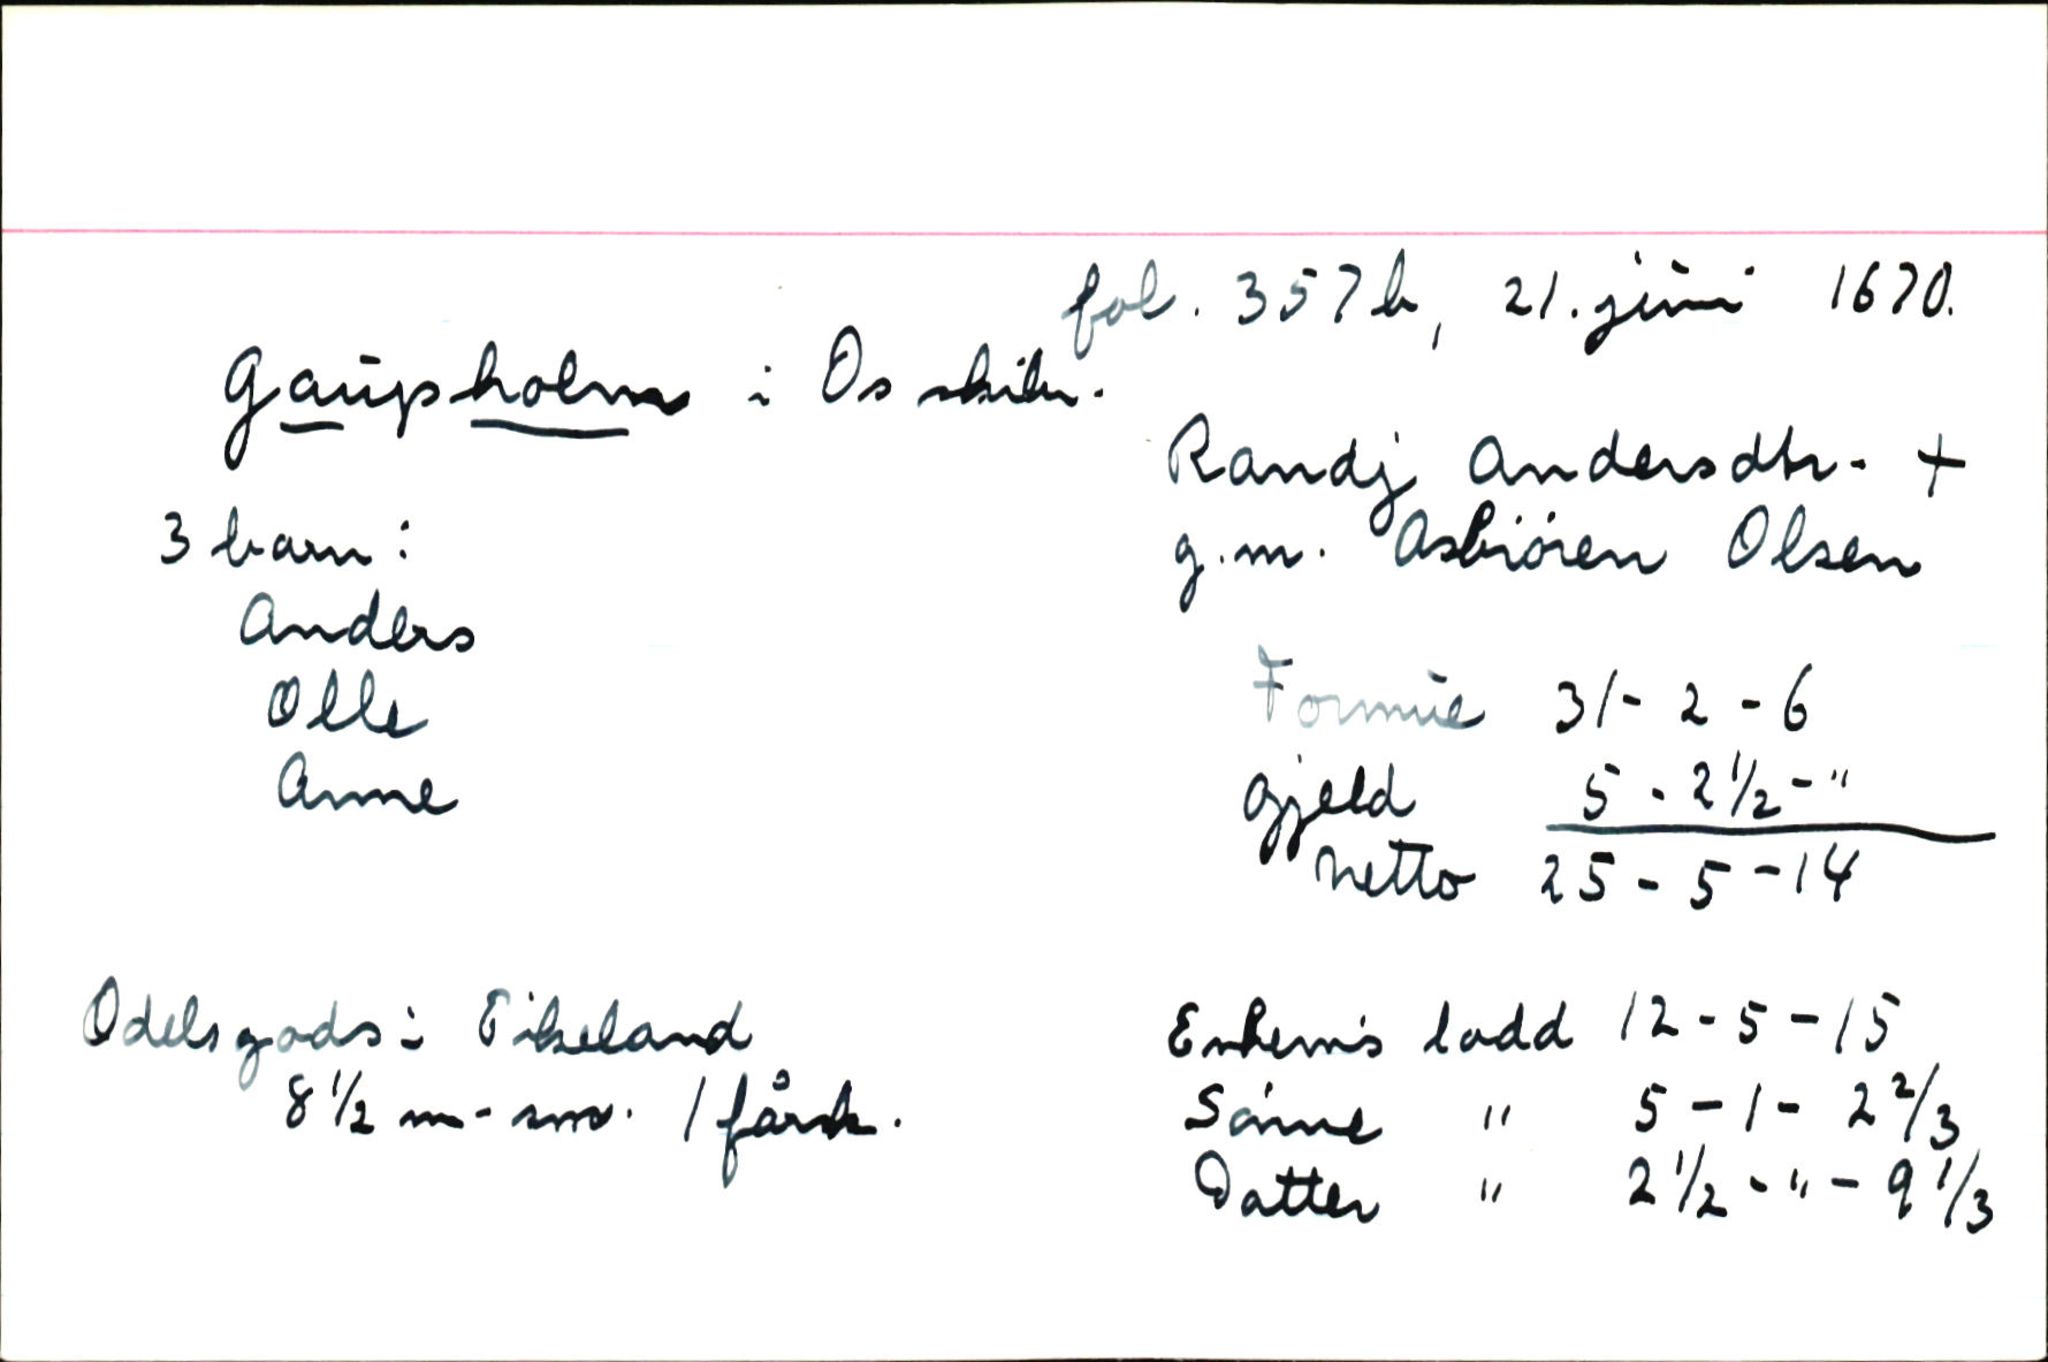 fol. 357 b, 21. juni 1670.
Gaupholm i Os skibr.
Randj Andersdtr. +
g.m. Asbiören Olsen
3 barn:
Anders
Olle
Anne
Formue 31 - 2 - 6
Gjeld 5 - 2 1/2 - "
Netto 25 - 5 - 14
Odelsgods i Eikeland
8 1/2 m - sm. 1 fårsk.
Enkem's lodd 12 - 5 - 15
Sönne " 5 - 1 - 2 2/3
Datter " 2 1/2 - " - 9 1/3